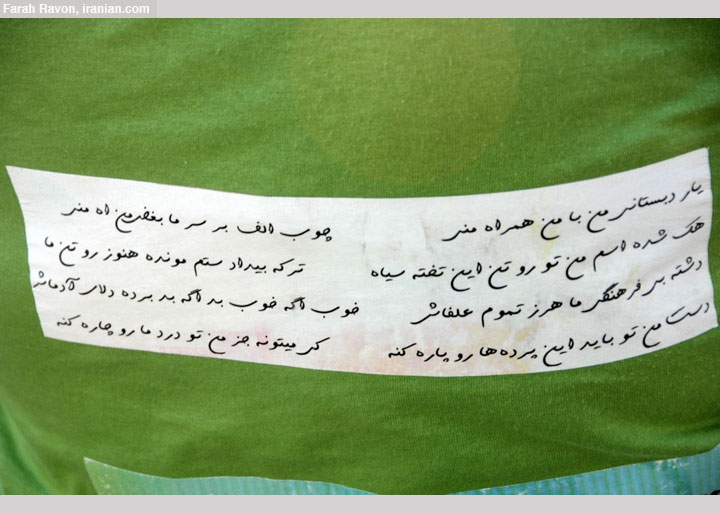 Farah Ravon, iranian.com
یار دبستانی من با من همراه منی چوب الف بر سر ما بغض من اه منی
هک شده اسم من تو رو تن این تخته سیاه ترکه بیداد ستم مونده هنوز رو تن ما
دشته بی فرهنگی ما هرز تموم علفاش خوب اگه خوب بد اگه بد برده دلای آدماش
دستا من تو باید این پرده‌ها رو پاره کنه کی میتونه جز من تو درد ما رو چاره کنه